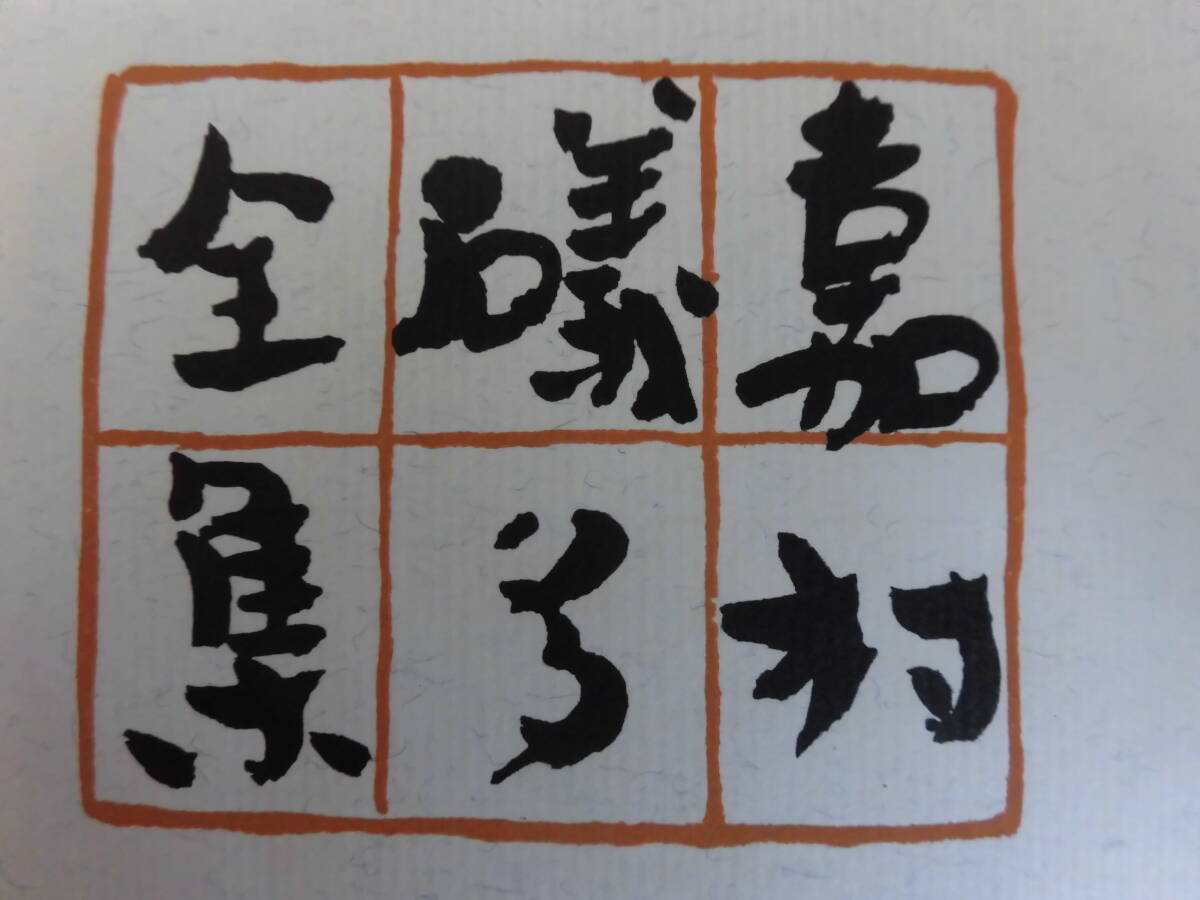 嘉村
礒多
全集